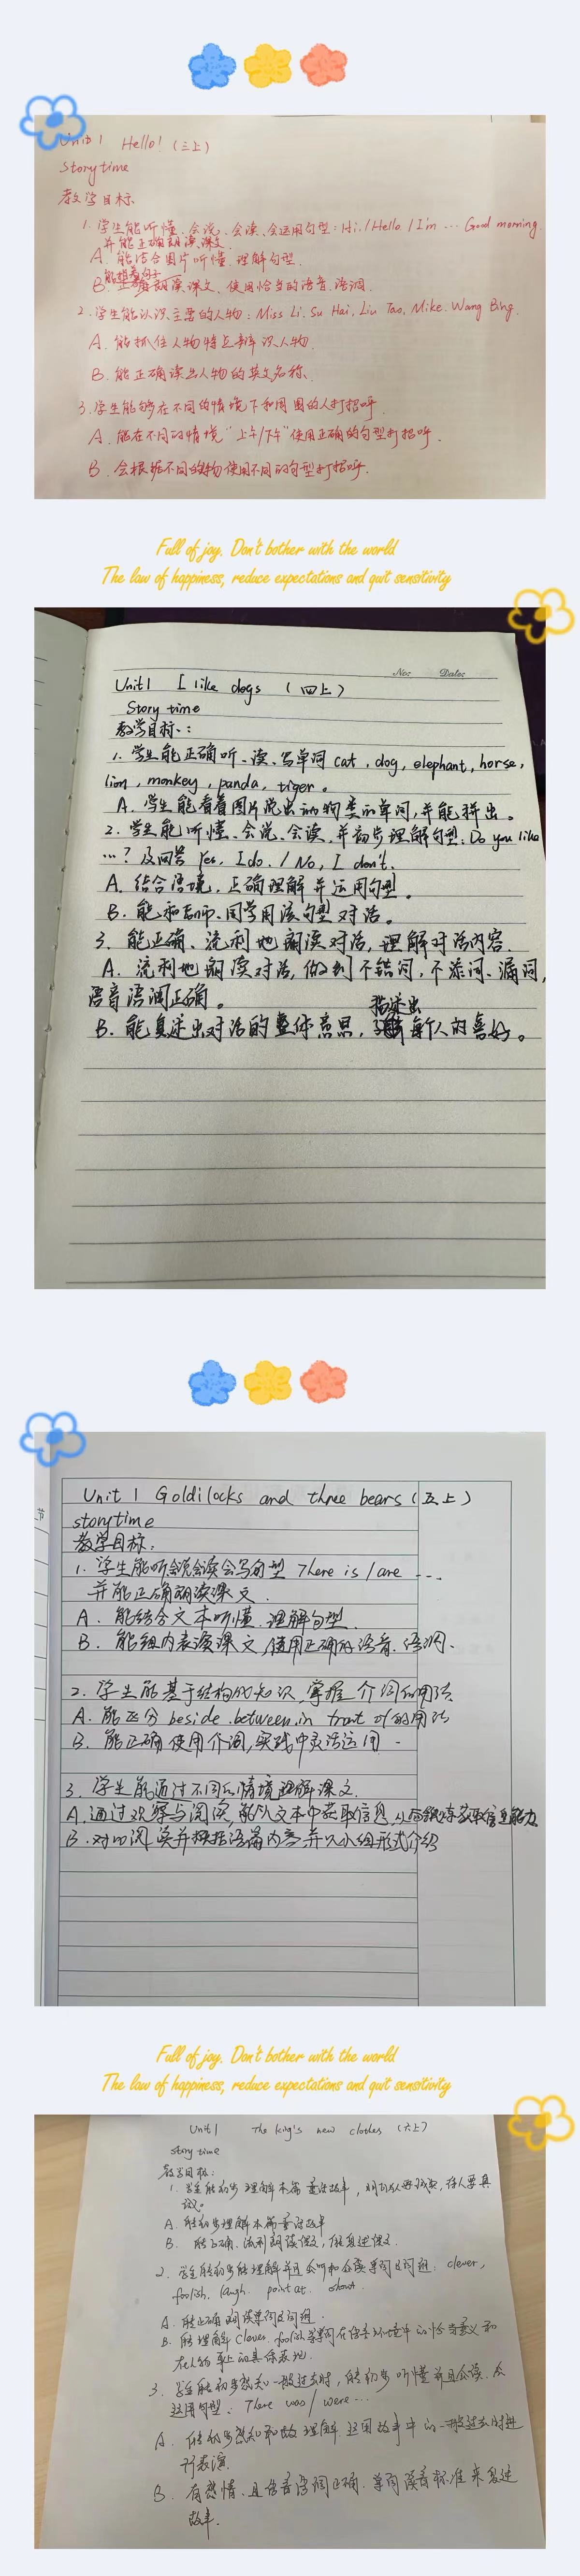 Unit 1 Hello! (三上)
Story time
教学目标
1. 学生能听懂、会说、会读、会运用句型: Hi./Hello./I'm … Good morning.
并能正确朗读课文.
A. 能结合图片听懂、理解句型.
B. 正确朗读课文, 使用恰当的语音、语调.
2. 学生能认识主要的人物: Miss Li, Su Hai, Liu Tao, Mike, Wang Bing.
A. 能抓住人物特点辨识人物.
B. 能正确读出人物的英文名称.
3. 学生能够在不同的情境下和周围的人打招呼.
A. 能在不同的情境"上午/下午"使用正确的句型打招呼.
B. 会根据不同的人物使用不同的句型打招呼.
Full of joy. Don't bother with the world
The law of happiness, reduce expectations and quit sensitivity
No: Date:
Unit 1 I like dogs (四上)
Story time
教学目标:
1. 学生能正确听、读、写单词 cat, dog, elephant, horse,
lion, monkey, panda, tiger。
A. 学生能看着图片说出动物类的单词, 并能拼出。
2. 学生能听懂、会说、会读、并初步理解句型: Do you like
…? 及回答 Yes, I do. / No, I don't.
A. 结合语境, 正确理解并运用句型。
B. 能和老师、同学用该句型对话。
3. 能正确、流利地朗读对话, 理解对话内容.
A. 流利地朗读对话, 做到不错词, 不添词、漏词,
语音语调正确。
描述出
B. 能复述出对话的整体意思, 每个人的喜好。
Unit 1 Goldilocks and three bears (五上)
storytime
教学目标:
1. 学生能听会说会读会写句型 There is / are ...
并能正确朗读课文.
A. 能结合文本听懂、理解句型.
B. 能组内表演课文, 使用正确的语音、语调.
2. 学生能基于结构化知识, 掌握介词的用法
A. 能区分 beside, between, in front of 的用法
B. 能正确使用介词, 实践中灵活运用.
3. 学生能通过不同的情境理解课文.
A. 通过观察与阅读, 能从文本中获取信息,
B. 并根据语篇内容并以小组形式介绍
Full of joy. Don't bother with the world
The law of happiness, reduce expectations and quit sensitivity
Unit 1 The king's new clothes (六上)
story time
教学目标:
1. 学生能初步理解本篇童话故事,
A. 能初步理解本篇童话故事
B. 能正确、流利朗读课文, 能复述课文.
2. 学生能初步能理解并且会听和会读单词及词组: clever,
foolish, laugh, point at, shout.
A. 能正确朗读单词及词组.
B. 能理解 clever, foolish 等单词在语言环境中的恰当意义和
在人物身上的具体表现.
3. 学生能初步感知一般过去时, 能初步听懂并且会读、会
运用句型. There was / were ...
A. 能初步感知和理解运用故事中的一般过去时进
行表演.
B. 有感情、且语音语调正确、单词读音标准来复述
故事.